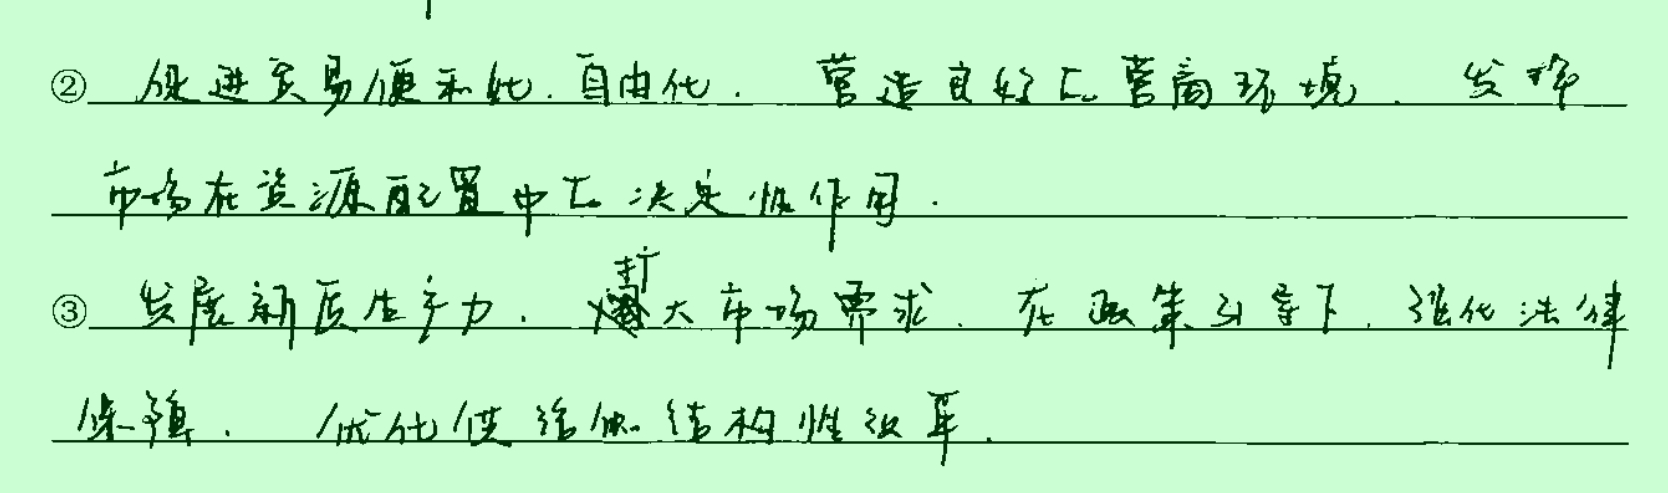 ② 促进贸易便利化.自由化. 营造良好的营商环境. 发挥
市场在资源配置中的决定性作用.
③ 发展新质生产力. 扩大市场需求. 在政策引导下. 强化法律
保障. 优化供给侧结构性改革.